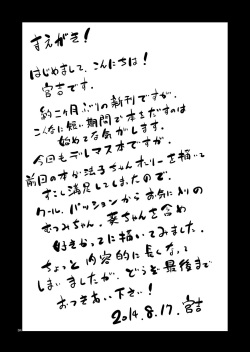 すえがき!
はじめまして、こんにちは!
宮吉です.
約二ヶ月ぶりの新刊ですが、
こんなに短い期間で本をだすのは
始めてな気がします.
今回もデレマス本ですが、
前回の本が法子ちゃんオンリーを描いて
すこし満足してしまったので、
クール、パッションからお気に入りの
むつみちゃん、葵ちゃんを含め
好きかってに描いてみました.
ちょっと内容的に長くなって
しまいましたが、どうぞ最後まで
おつきあい下さい!
2014.8.17. 宮吉